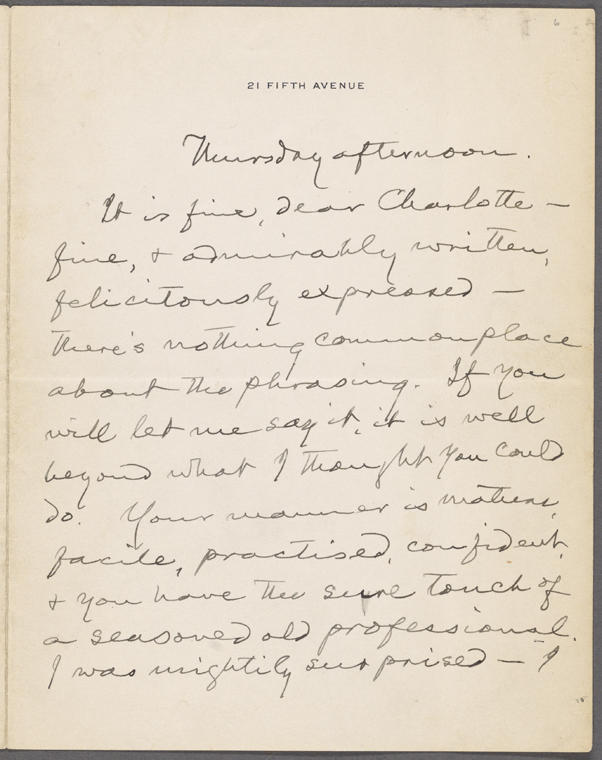 21 FIFTH AVENUE
Thursday afternoon.
It is fine, dear Charlotte —
fine, & admirably written,
felicitously expressed —
there's nothing commonplace
about the phrasing. If you
will let me say it, it is well
beyond what I thought you could
do. Your manner is mature,
facile, practised, confident,
& you have the sure touch of
a seasoned old professional.
I was mightily surprised — I